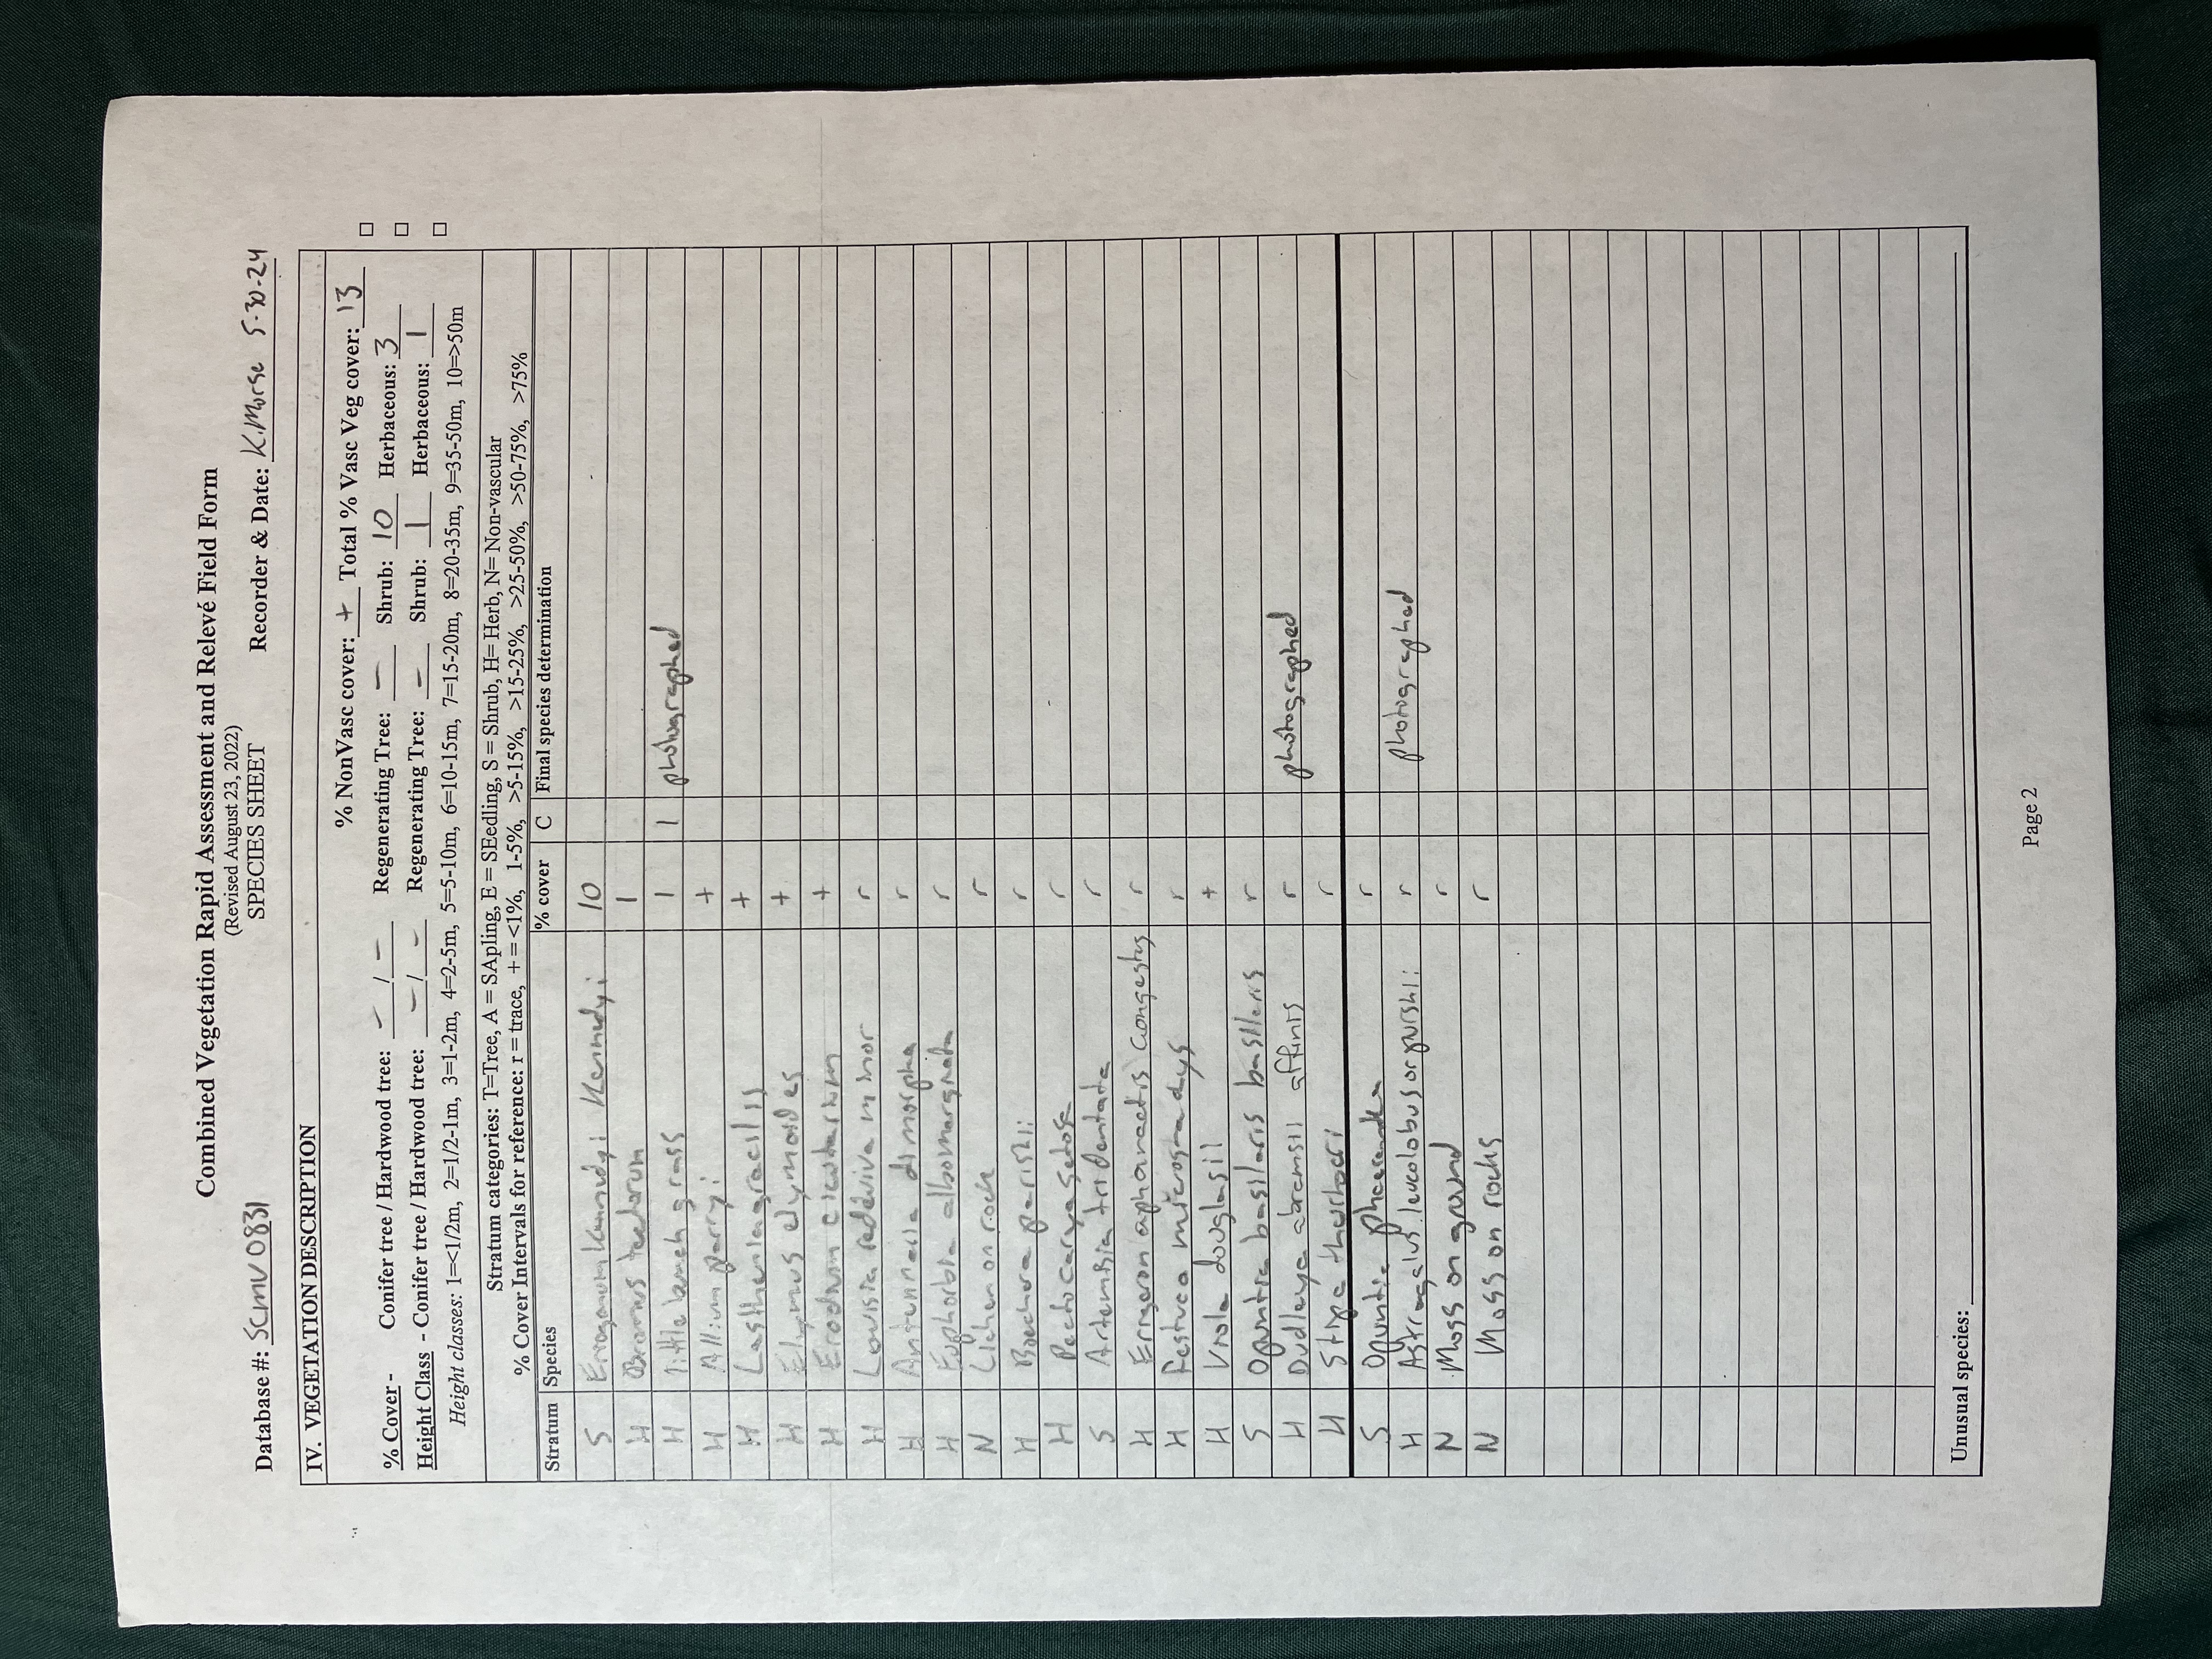 Combined Vegetation Rapid Assessment and Relevé Field Form
(Revised August 23, 2022)
SPECIES SHEET
Database #: SCMV0831 Recorder & Date: K.Morse 5-30-24
IV. VEGETATION DESCRIPTION
% NonVasc cover: + Total % Vasc Veg cover: 13 □
% Cover - Conifer tree / Hardwood tree: - / - Regenerating Tree: - Shrub: 10 Herbaceous: 3 □
Height Class - Conifer tree / Hardwood tree: - / - Regenerating Tree: - Shrub: 1 Herbaceous: 1 □
Height classes: 1=<1/2m, 2=1/2-1m, 3=1-2m, 4=2-5m, 5=5-10m, 6=10-15m, 7=15-20m, 8=20-35m, 9=35-50m, 10=>50m
Stratum categories: T=Tree, A = SApling, E = SEedling, S = Shrub, H= Herb, N= Non-vascular
% Cover Intervals for reference: r = trace, + = <1%, 1-5%, >5-15%, >15-25%, >25-50%, >50-75%, >75%
Stratum Species % cover C Final species determination
S Eriogonum kennedyi kennedyi 10
H Bromus tectorum 1
H little bunch grass 1 1 photographed
H Allium parryi +
H Lasthenia gracilis +
H Elymus elymoides +
H Erodium cicutarium +
H Lewisia rediviva minor r
H Antennaria dimorpha r
H Euphorbia albomarginata r
N Lichen on rock r
H Boechera parishii r
H Pectocarya setosa r
S Artemisia tridentata r
H Erigeron aphanactis congestus r
H Festuca microstachys r
H Viola douglasii +
S Opuntia basilaris basilaris r
H Dudleya abramsii affinis r photographed
H Stipa thurberi r
S Opuntia phaeacantha r
H Astragalus leucolobus or purshii r photographed
N Moss on ground r
N Moss on rocks r
Unusual species:
Page 2